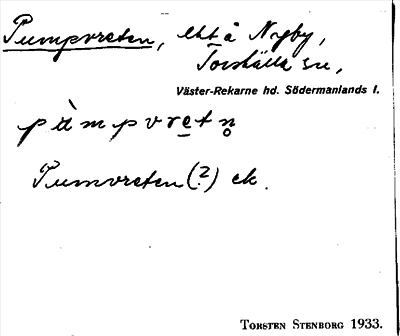 Pumpvreten, ekt å Nyby,
Torshälla sn,
Väster-Rekarne hd. Södermanlands l.
pu̇mpvretn̥
Pumvreten (?) ek.
TORSTEN STENBORG 1933.